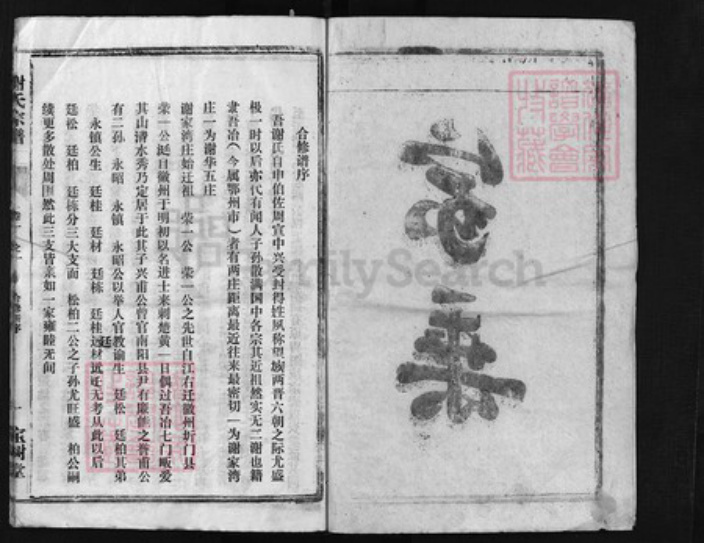 家乘
合修谱序
吾谢氏自申伯佐周宣中兴受封得姓夙称望族两晋六朝之际尤盛
极一时以后亦代有闻人子孙散满国中各宗其近祖然实无二谢也籍
隶吾冶(今属鄂州市)者有两庄距离最近往来最密切一为谢家湾
庄一为谢华五庄
谢家湾庄始迁祖 荣一公 荣一公之先世自江右迁徽州圻门县
荣一公挺自徽州于明初以名进士来刺楚黄一日偶过吾冶七门畈爱
其山清水秀乃定居于此其子兴甫公曾官南阳县尹有廉能之誉甫公
有二孙 永昭 永镇 永昭公以举人官教谕生 廷松 廷柏其弟
永镇公生 廷桂 廷材 廷栋 廷桂廷材远迁无考从此以后
廷松 廷柏 廷栋分三大支面 松柏二公之子孙尤旺盛 柏公嗣
续更多散处周围然此三支皆亲如一家雍睦无间
谢氏宗谱
合修谱序
一
宝树堂
FamilySearch